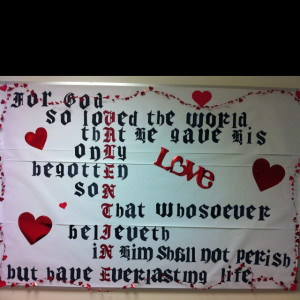 For God
so loved the world
that He gave His
only
Love
begotten
son
That whosoever
believeth
in Him Shall not perish
but have Everlasting life